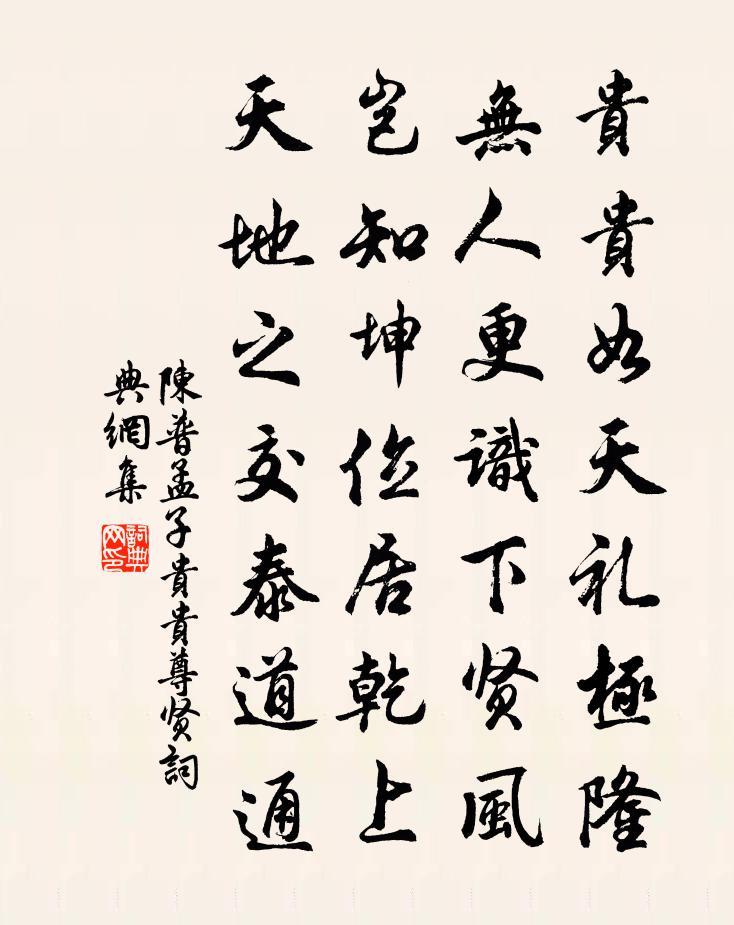 貴貴如天礼極隆
無人更識下贤風
豈知坤位居乾上
天地之交泰道通
陳普孟子貴貴尊贤詞
典網集
詞典
网印